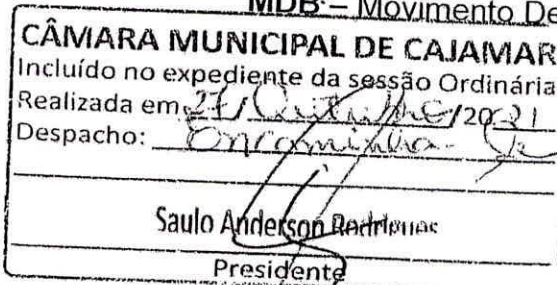 MDB – Movimento De
CÂMARA MUNICIPAL DE CAJAMAR
Incluído no expediente da sessão Ordinária
Realizada em 27/Outubro/2021
Despacho: Encaminha-se
Saulo Anderson Rodrigues
Presidente